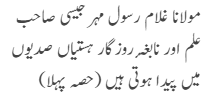 مولانا غلام رسول مہر جیسی صاحب
علم اور نابغہ روزگار ہستیاں صدیوں
میں پیدا ہوتی ہیں (حصہ پہلا)